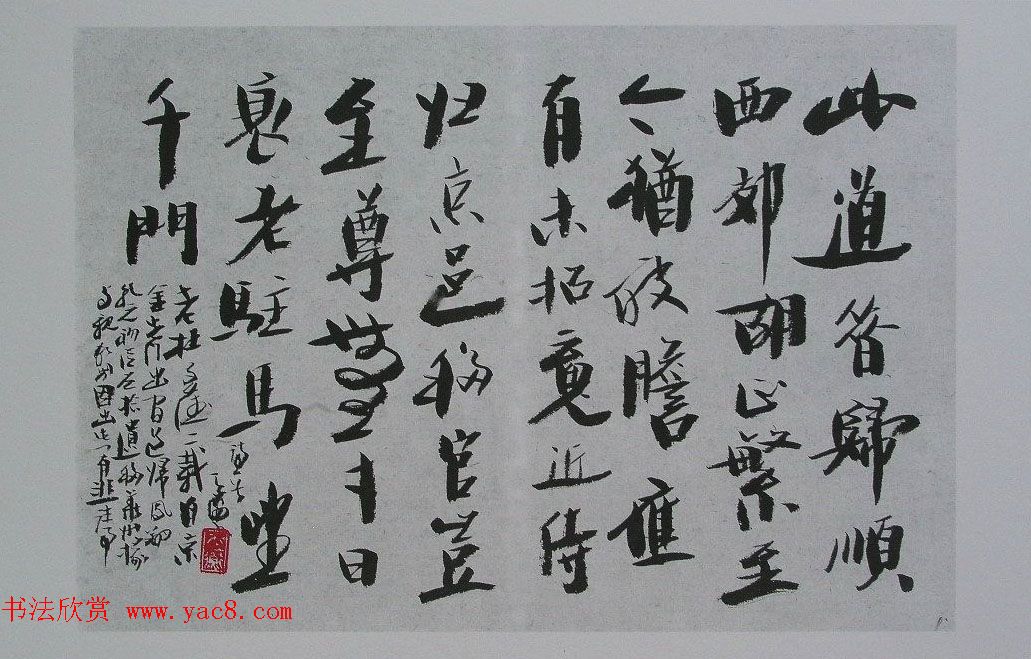 此道昔歸順
西郊胡正繁至
今猶破膽應
有未招魂近侍
归京邑移官豈
至尊無才日
衰老駐馬望
千門
老杜至德二載自京
金光门出間道歸鳳翔
乾元初從左拾遺移華州掾
与親故別因出此門有悲往事
书法欣赏 www.yac8.com